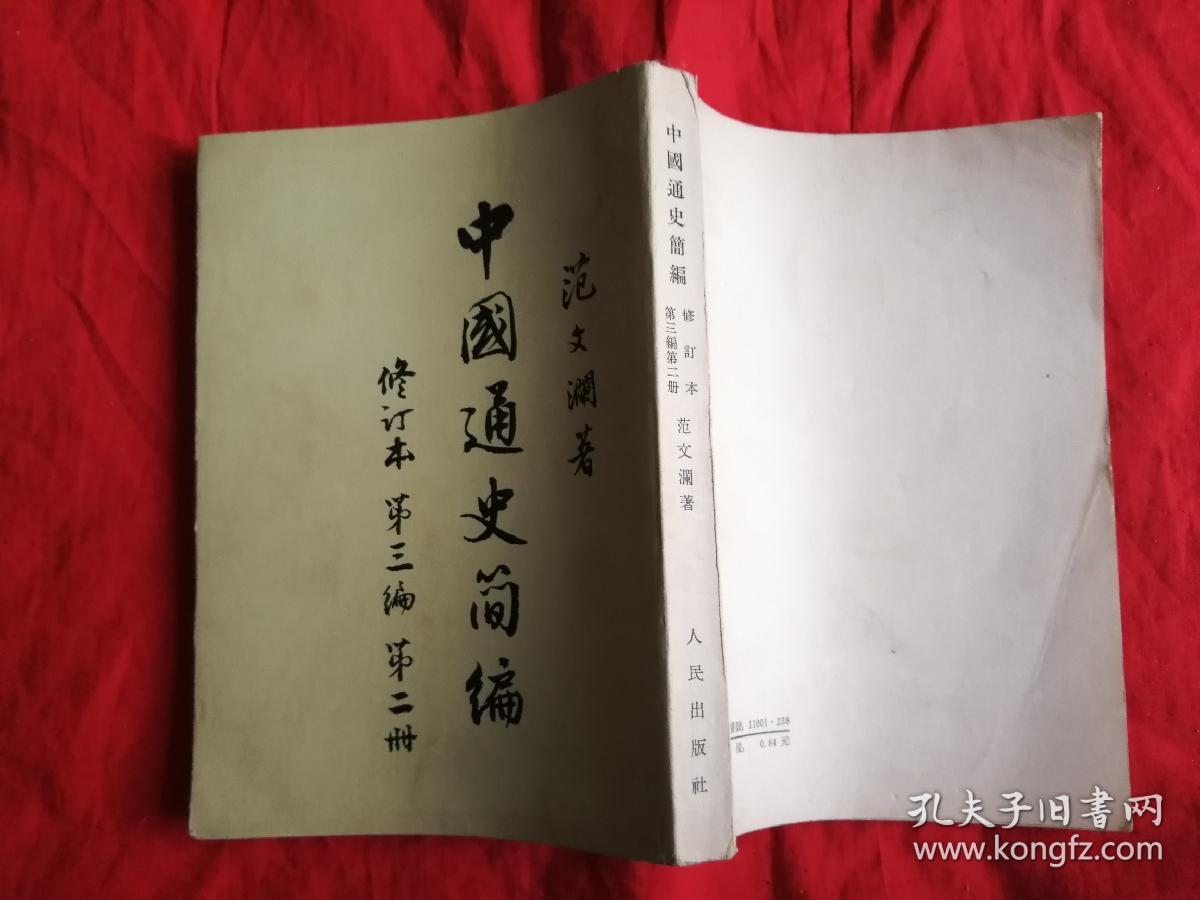 范文瀾著
中國通史简编
修订本 第三编 第二册
中國通史簡編
修訂本
第三編第二册
范文瀾著
人民出版社
書號 11001·238
0.84元
孔夫子旧书网
www.kongfz.com